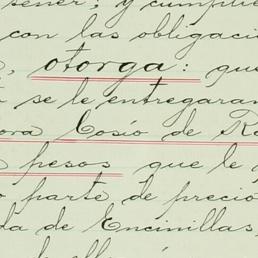 tener; y cumplie
con las obligacio
, otorga: que
se le entregaran
ora Cosío de R
pesos que le
parte de precio
da de Encinillas,